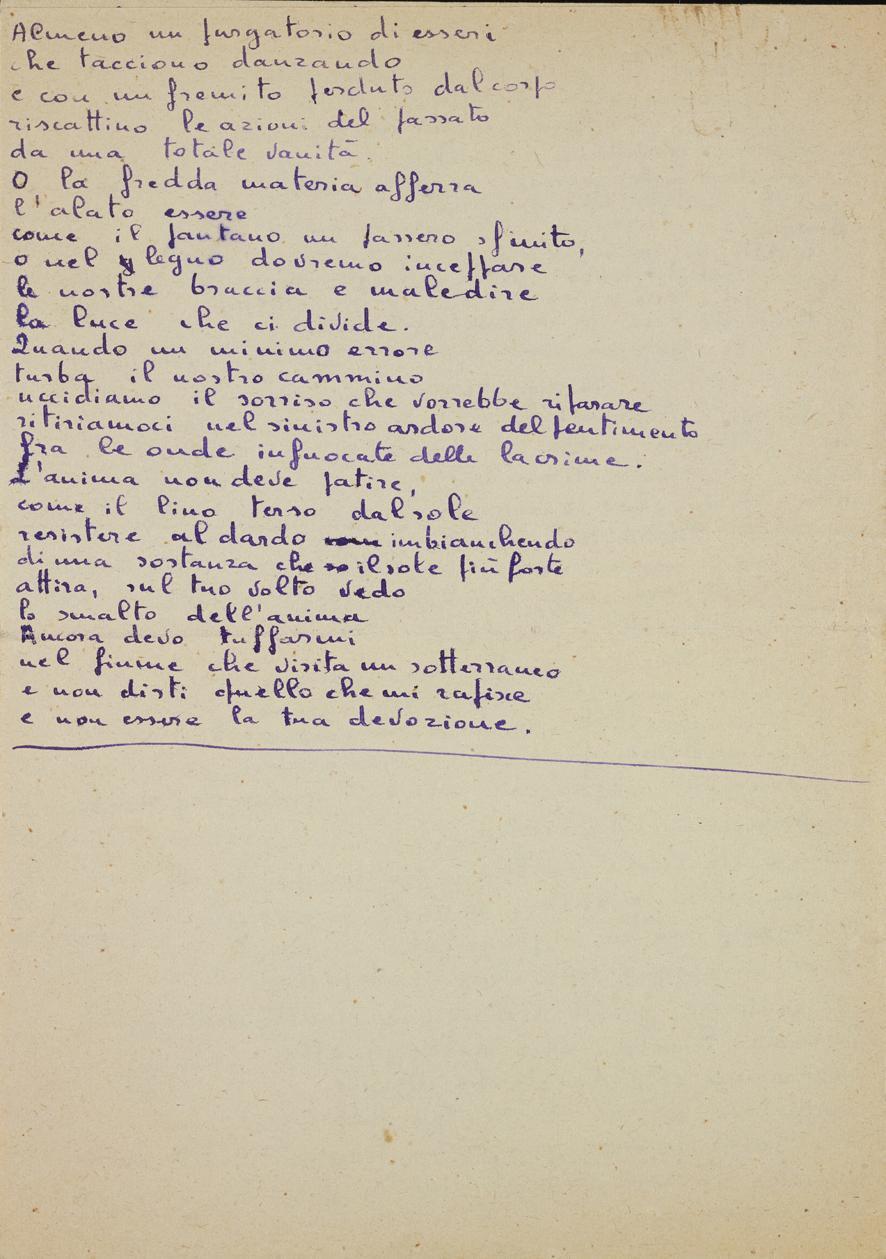 Almeno un purgatorio di esseri
che tacciono danzando
e con un fremito perduto dal corpo
riscattino le azioni del passato
da una totale vanità.
O la fredda materia afferra
l'alato essere
come il pantano un passero sfinito,
o nel legno dovremo inceppare
le nostre braccia e maledire
la luce che ci divide.
Quando un minimo errore
turba il nostro cammino
uccidiamo il sorriso che vorrebbe riparare
ritiriamoci nel sinistro ardore del pentimento
fra le onde infuocate delle lacrime.
L'anima non deve patire,
come il lino terso dal sole
resistere al dardo imbianchendo
di una sostanza che il sole più forte
attira, sul tuo volto vedo
lo smalto dell'anima
Ancora devo tuffarmi
nel fiume che visita un sotterraneo
e non disti quello che mi rapisce
e non essere la tua devozione.